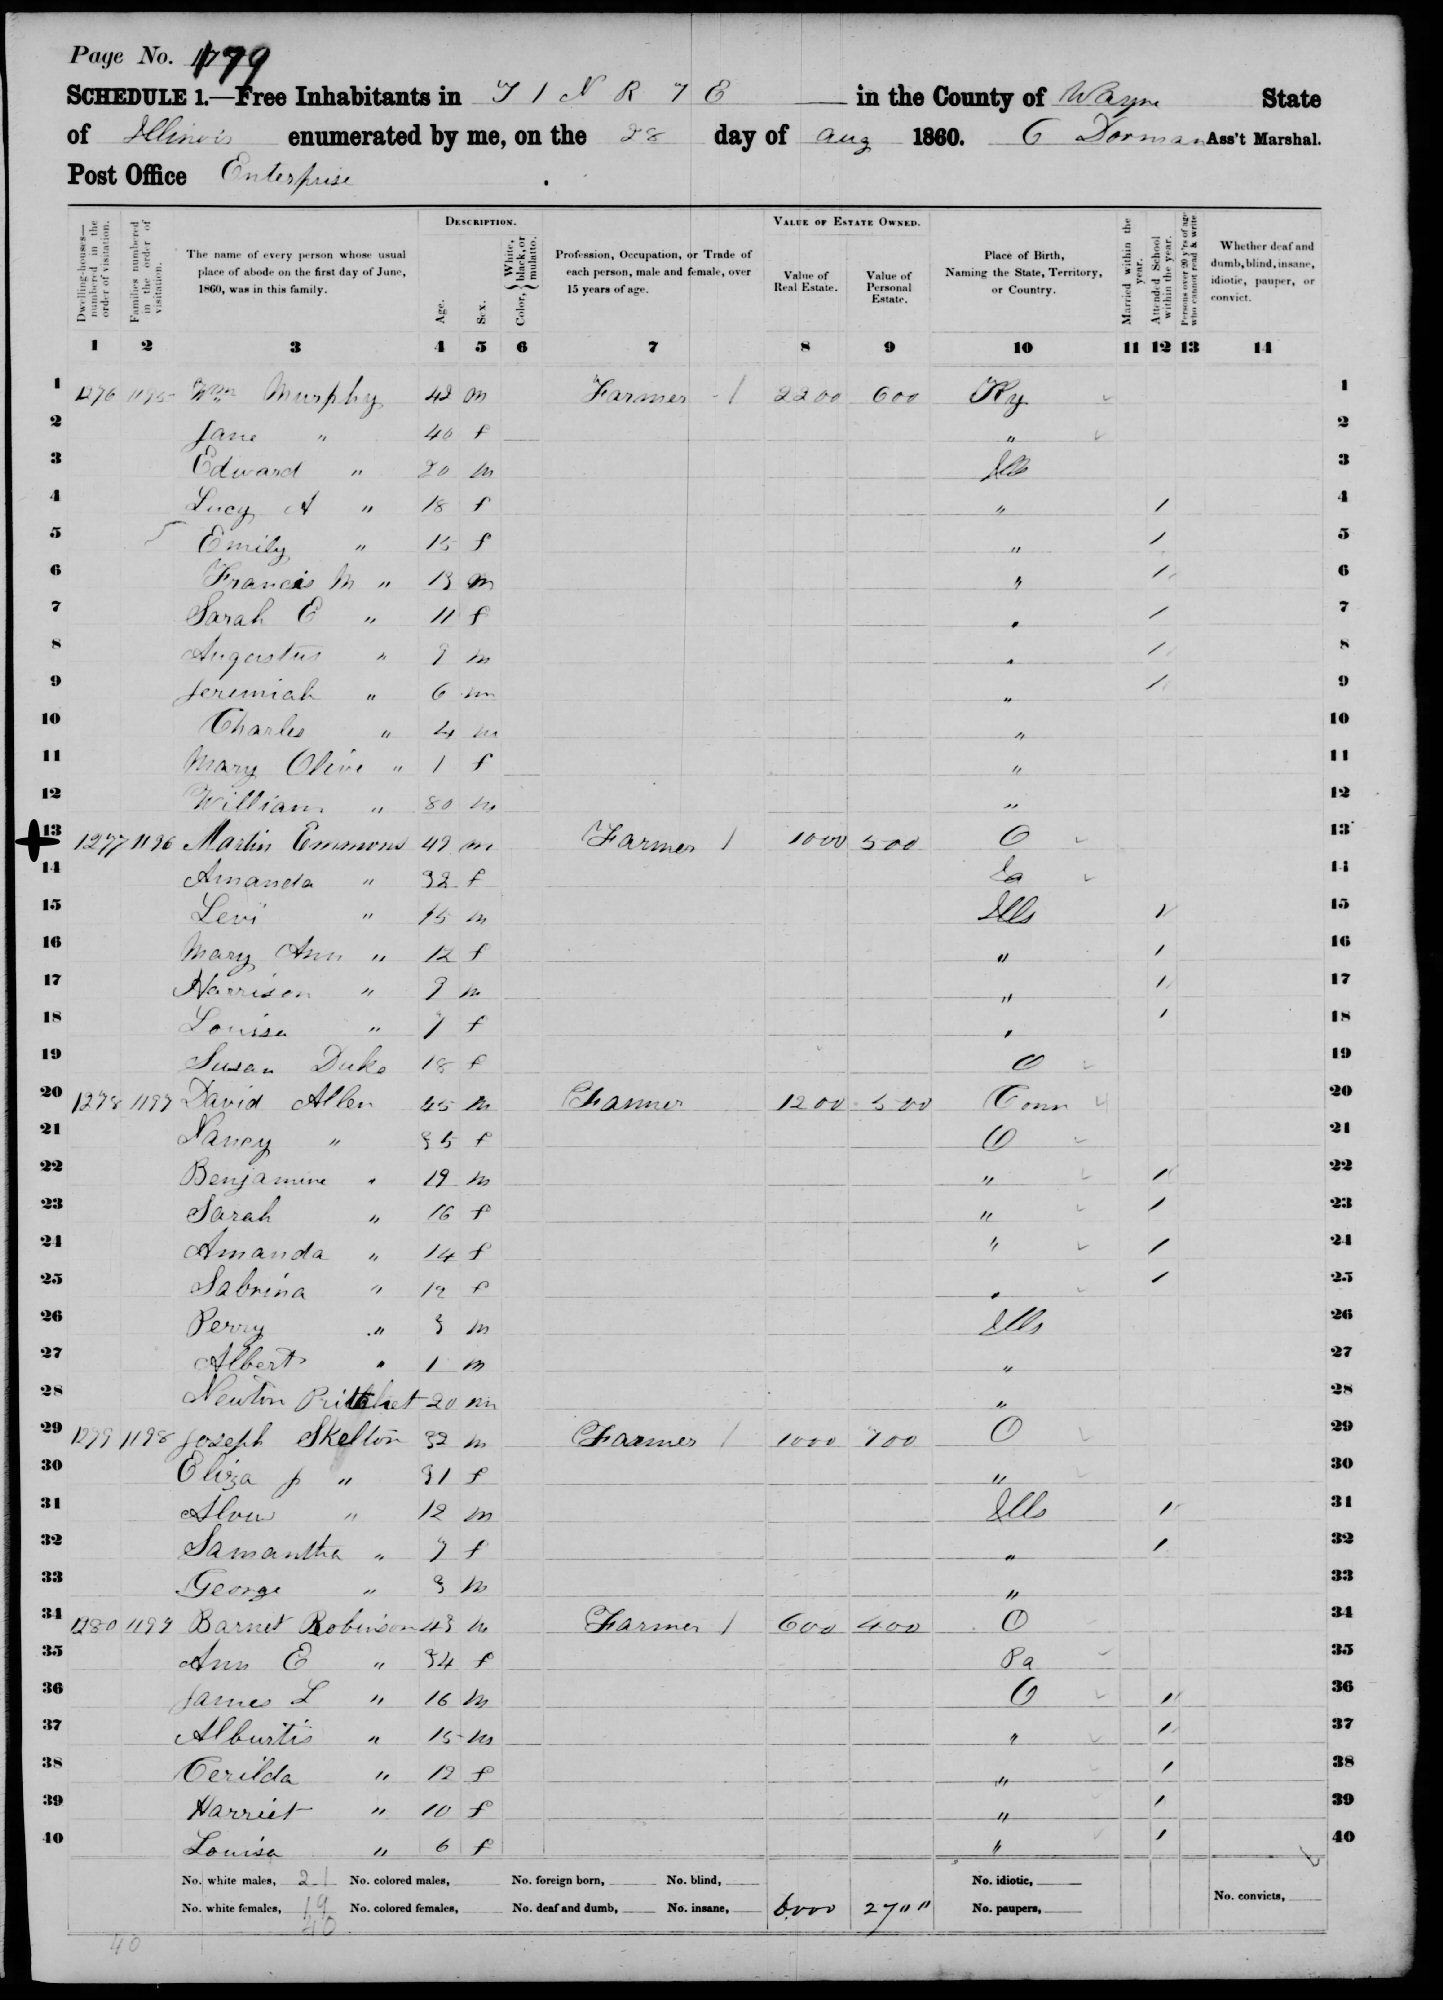 Page No. 179
SCHEDULE 1.—Free Inhabitants in T 1 N R 7 E in the County of Wayne State
of Illinois enumerated by me, on the 28 day of Aug 1860. C Dorman Ass't Marshal.
Post Office Enterprise
Dwelling-houses—numbered in the order of visitation.
Families numbered in the order of visitation.
The name of every person whose usual place of abode on the first day of June, 1860, was in this family.
DESCRIPTION.
Age.
Sex.
Color, { White, black, or mulatto.
Profession, Occupation, or Trade of each person, male and female, over 15 years of age.
VALUE OF ESTATE OWNED.
Value of Real Estate.
Value of Personal Estate.
Place of Birth, Naming the State, Territory, or Country.
Married within the year.
Attended School within the year.
Persons over 20 y'rs of age who cannot read & write.
Whether deaf and dumb, blind, insane, idiotic, pauper, or convict.
1 2 3 4 5 6 7 8 9 10 11 12 13 14
1 1276 1195 Wm Murphy 42 m Farmer 1 2200 600 Ky 1
2 Jane " 40 f " 2
3 Edward " 20 m Ills 3
4 Lucy A " 18 f " 1 4
5 Emily " 15 f " 1 5
6 Francis M " 13 m " 1 6
7 Sarah E " 11 f " 1 7
8 Augustus " 9 m " 1 8
9 Jeremiah " 6 m " 1 9
10 Charles " 4 m " 10
11 Mary Olive " 1 f " 11
12 William " 80 m " 12
13 1277 1196 Martin Emmons 49 m Farmer 1 1000 500 O 13
14 Amanda " 32 f Ia 14
15 Levi " 15 m Ills 1 15
16 Mary Ann " 12 f " 1 16
17 Harrison " 9 m " 1 17
18 Louisa " 7 f " 1 18
19 Susan Duke 18 f O 19
20 1278 1197 David Allen 45 m Farmer 1200 500 Conn 20
21 Nancy " 35 f O 21
22 Benjamine " 19 m " 1 22
23 Sarah " 16 f " 1 23
24 Amanda " 14 f " 1 24
25 Sabrina " 12 f " 1 25
26 Perry " 3 m Ills 26
27 Albert " 1 m " 27
28 Newton Pritchet 20 m " 28
29 1279 1198 Joseph Skelton 32 m Farmer 1 1000 700 O 29
30 Eliza J " 31 f " 30
31 " 12 m Ills 1 31
32 Samantha " 7 f " 1 32
33 George " 3 m " 33
34 1280 1199 Barnet Robinson 43 m Farmer 1 600 400 O 34
35 Ann E " 34 f Pa 35
36 James L " 16 m O 1 36
37 Alburtis " 15 m " 1 37
38 Cerilda " 12 f " 1 38
39 Harriet " 10 f " 1 39
40 Louisa " 6 f " 1 40
No. white males, 21 No. colored males, No. foreign born, No. blind, No. idiotic,
No. white females, 19 No. colored females, No. deaf and dumb, No. insane, 6000 2700 No. paupers, No. convicts,
40
40